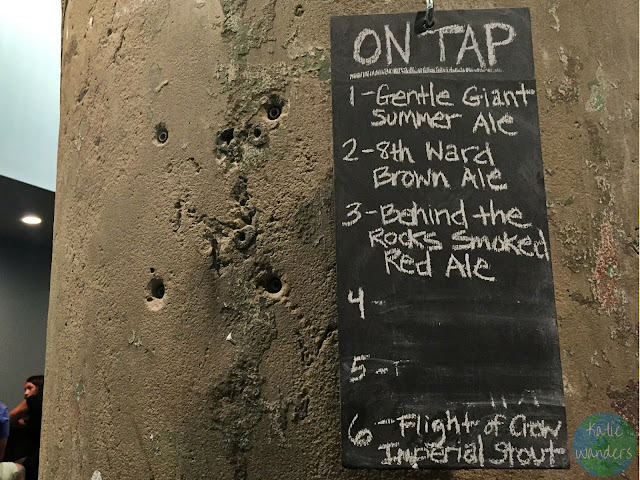 ON TAP
1-Gentle Giant
Summer Ale
2-8th Ward
Brown Ale
3-Behind the
Rocks Smoked
Red Ale
4-
5-
6-Flight of Crow
Imperial Stout
Katie
Wanders